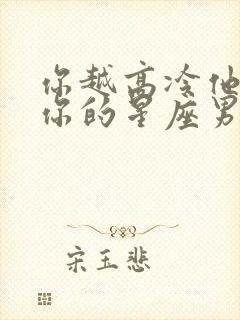 你越高冷他
你的星座男
宋玉悲